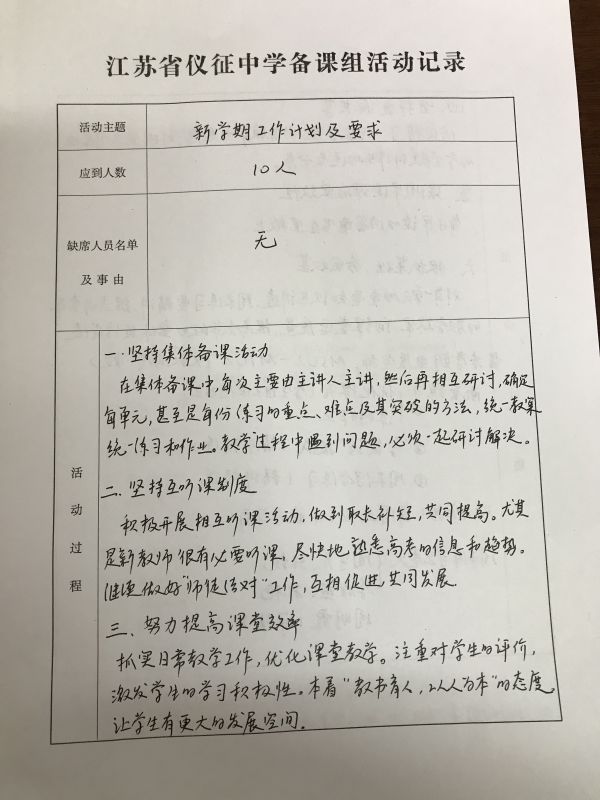 江苏省仪征中学备课组活动记录
活动主题
新学期工作计划及要求
应到人数
10人
缺席人员名单
及事由
无
活动过程
一.坚持集体备课活动
在集体备课中,每次主要由主讲人主讲,然后再相互研讨,确定
每单元,甚至是每份练习的重点、难点及其突破的方法,统一教案
统一练习和作业。教学过程中遇到问题,必须一起研讨解决。
二.坚持互听课制度
积极开展相互听课活动,做到取长补短,共同提高。尤其
是新教师很有必要听课,尽快地熟悉高考的信息和趋势。
继续做好"师徒结对"工作,互相促进,共同发展.
三、努力提高课堂效率
抓实日常教学工作,优化课堂教学。注重对学生的评价,
激发学生的学习积极性。本着"教书育人,以人为本"的态度
让学生有更大的发展空间.